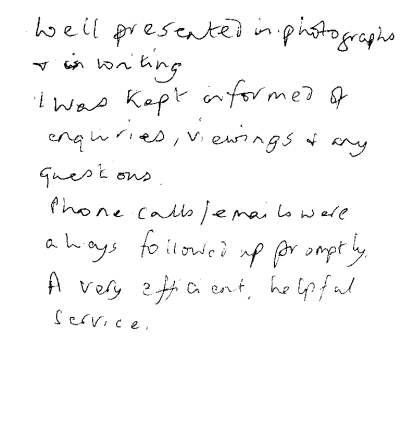 Well presented in photographs
+ in writing
I was kept informed of
enquiries, viewings + any
questions.
Phone calls/emails were
always followed up promptly.
A very efficient, helpful
service.